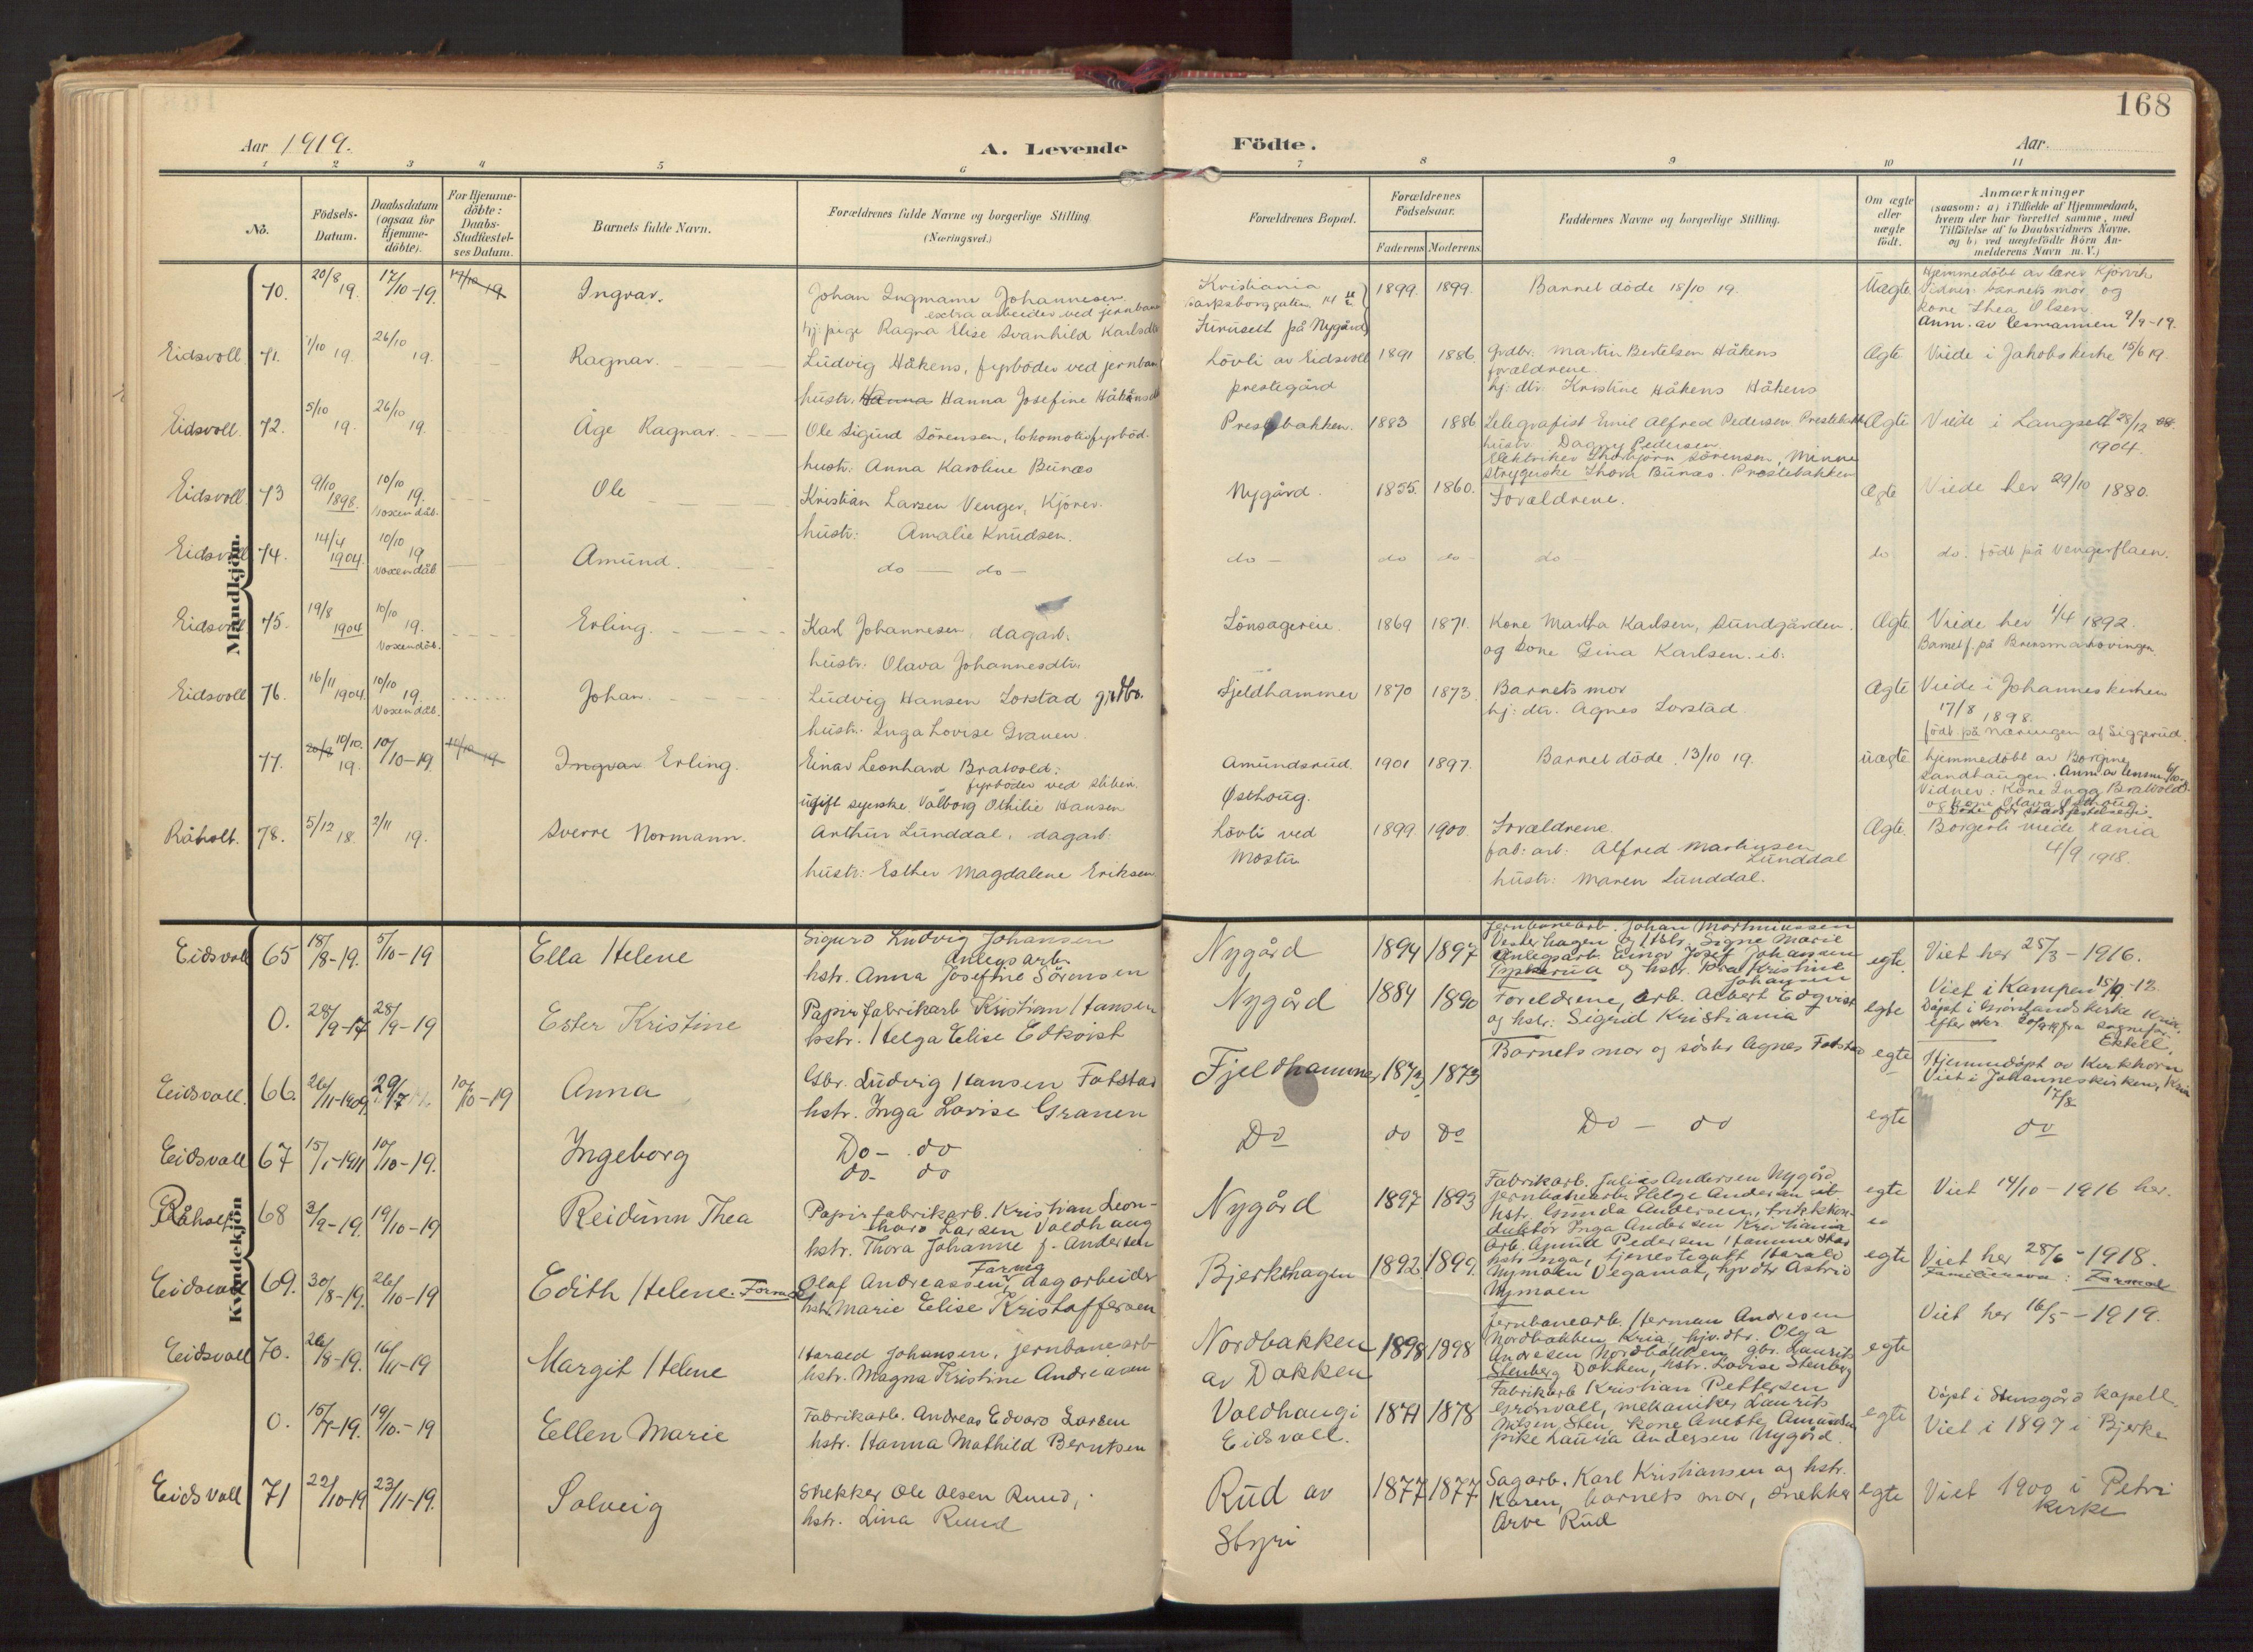 168
Aar 1919.
A. Levende
Födte.
Aar.
1 2 3 4 5 6 7 8 9 10 11
No.
Födsels-Datum.
Daabsdatum (ogsaa for Hjemme-döbte).
For Hjemme-döbte: Daabs-Stadfæstel-ses Datum.
Barnets fulde Navn.
Forældrenes fulde Navne og borgerlige Stilling
(Næringsvei.)
Forældrenes Bopæl.
Forældrenes Födselsaar.
Faderens Moderens
Faddernes Navne og borgerlige Stilling.
Om ægte eller uægte födt.
Anmærkninger
(saasom: a) i Tilfælde af Hjemmedaab, hvem der har forrettet samme, med Tilföielse af to Daabsvidners Navne, og b) ved uægtefödte Börn An-melderens Navn m. V.)
Mandkjön.
70. 20/8 19. 17/10-19. 17/10 19 Ingvar. Johan Ingmann Johannesen
extra arbeider ved jernbane
hj: pige Ragna Elise Svanhild Karlsdtr
Kristiania
Sarpsborggaten 14
Furuset på Nygård
1899. 1899. Barnet döde 18/10 19. Uægte Hjemmedöbt av lærer
Vidner: barnets mor og
kone Thea Olsen.
Anm. av lensmannen 9/9-19.
Eidsvoll 71. 1/10 19. 26/10 19. Ragnar. Ludvig Håkens, fyrböder ved jernban
hustr. Hanna Hanna Josefine
Lövli av Eidsvoll
prestegård
1891 1886 Grdbr. Martin Bertelsen Håkens
forældrene.
hj: dtr. Kristine Håkens Håkens
Ægte Viede i Jakobskirke 15/6 19.
Eidsvoll. 72. 5/10 19. 26/10 19. Åge Ragnar. Ole Sigurd Sörensen, lokomotivfyrböd.
hustr: Anna Karoline Bunæs
Prestebakken. 1883 1886 Telegrafist Emil Alfred Pedersen, Prestebak
hustr. Dagny Pedersen
Elektriker Thorbjörn Sörensen, Minne
Strygerske Thora Bunæs. Prestebakken
Ægte Viede i Langset 28/12
1904.
Eidsvoll 73 9/10 1898. 10/10 19. Voxendåb. Ole Kristian Larsen Venger, Kjörer.
hustr: Amalie Knudsen.
Nygård. 1855. 1860. Forældrene. Ægte Viede her 29/10 1880.
Eidsvoll 74. 14/4 1904. 10/10 19 Voxendåb. Amund. do — do —
do — do do — do — do do. født på Vengerflaen.
Eidsvoll 75. 19/8 1904 10/10 19. Voxendåb. Erling. Karl Johannesen, dagarb.
hustr: Olava Johannesdtr.
Lönsagereie. 1869 1871. Kone Martha Karlsen, Sundgården.
og kone Gina Karlsen. ib.
Ægte Viede her 1/4 1892.
Barnet f. på
Eidsvoll 76. 16/11 1904. 10/10 19. Voxendåb. Johan. Ludvig Hansen Forstad grdbr.
hustr. Inga Lovise Granen.
Fjeldhammer 1870 1873. Barnets mor
hj: dtr. Agnes Forstad
Ægte Viede i Johanneskirken
17/8 1898.
født på Næringen af Siggerud.
77. 20/9 10/10. 19. 10/10-19 Ingvar Erling. Einar Leonhard Bratvold:
fyrböder ved
ugift syerske Valborg Othilie Hansen
Amundsrud.
Østhoug.
1901 1897. Barnet döde 13/10 19. uægte hjemmedöbt av Borgine
Sandhaugen. Anm av lensm.
Vidner: Kone Inga Bratvold
og kone Olava Østhoug.
Döde för stadfæstelsen.
Råholt. 78. 5/12 18. 2/11 19. Sverre Normann. Arthur Lunddal, dagarb:
hustr: Esther Magdalene Eriksen
Lövli ved
Mostu
1899 1900. Forældrene
fab: arb. Alfred Markusen
Lunddal
hustr: Maren Lunddal.
Ægte. Borgerli viede Kania
4/9 1918.
Kvindekjön
Eidsvoll 65 18/8-19. 5/10-19 Ella Helene Sigurd Ludvig Johansen
anlegsarb.
hstr. Anna Josefine Sörensen
Nygård 1894 1897 Jernbanearb. Johan Martiniussen
Vesterhagen og hstr. Signe Marie
Anlegsarb. Einar Josef Johansen
og hstr. Kristine
Johansen
egte. Viet her 25/3-1916.
0. 28/9-17 28/9-19 Ester Kristine Papirfabrikarb Kristian Hansen
hstr. Helga Elise Edkvist
Nygård 1884 1890 Foreldrene, arb. Albert Edqvist
og hstr: Sigrid Kristiania
egte Viet i Kampen 15/9-12
Döpt i Grönlands kirke Kria.
Eidsvoll. 66. 26/11-1909 29/7 10/10-19 Anna Gbr. Ludvig Hansen Fotstad
hstr. Inga Lovise Granen
Fjeldhammer 1870 1873 Barnets mor og söster Agnes Fotstad egte Hjemmedöpt av Kirkhorn
Viet i Johanneskirken, Kria
17/8
Eidsvoll 67 15/1-1911 10/10-19. Ingeborg Do — do
do — do
Do do do Do — do egte do
Råholt 68 3/9-19. 19/10-19 Reidunn Thea Papirfabrikarb. Kristian Leon-
hard Larsen Voldhaug
hstr. Thora Johanne f. Andersen
Nygård 1897 1893 Fabrikarb. Julius Andersen Nygård
jernbanearb. Helge Andersen ib.
hstr. Gunda Andersen, trikkkon-
duktör Inga Andersen Kristiania
egte Viet 14/10-1916 her.
Eidsvoll 69. 30/8-19. 26/10-19 Edith Helene. Olaf Andreassen, dagarbeider
hstr. Marie Elise Kristoffersen
Bjerkehagen 1892 1899. Arb. Amund Pedersen Hammerstad
hstr Inga, tjenestegutt Harald
Nymoen Vegamot, hjv dtr Astrid
Nymoen
egte Viet her 28/6-1918.
Familienavn:
Eidsvoll 70. 26/8-19. 16/11-19 Margit Helene Harald Johansen, jernbanearb
hstr. Magna Kristine Andreasen
Nordbakken
av Dokken
1898 1898 Jernbanearb. Herman Andresen
Nordbakken Kria, hjv. dtr. Olga
Andresen Nordbakken, gbr. Laurits
Stenberg Dokken, hstr. Lovise Stenberg
egte Viet her 16/5-1919.
0. 15/7-19. 19/10-19 Ellen Marie Fabrikarb. Andreas Edvard Larsen
hstr. Hanna Mathild Berntsen
Voldhaugi
Eidsvoll.
1871 1878 Fabrikarb Kristian Pettersen
Grönvoll, mekaniker Laurits
Nilsen Sten kone Anette Amundsen
pike Laura Andersen Nygård.
egte Döpt i Stensgård kapell.
Viet i 1897 i Bjerke
Eidsvoll 71 22/10-19 23/11-19. Solveig Snekker Ole Olsen Ruud,
hstr. Lina Ruud
Rud av
Styri
1877 1877 Sagarb. Karl Kristiansen og hstr.
Karen, barnets mor, snekker
Arve Rud
egte Viet 1900 i Petri
kirke